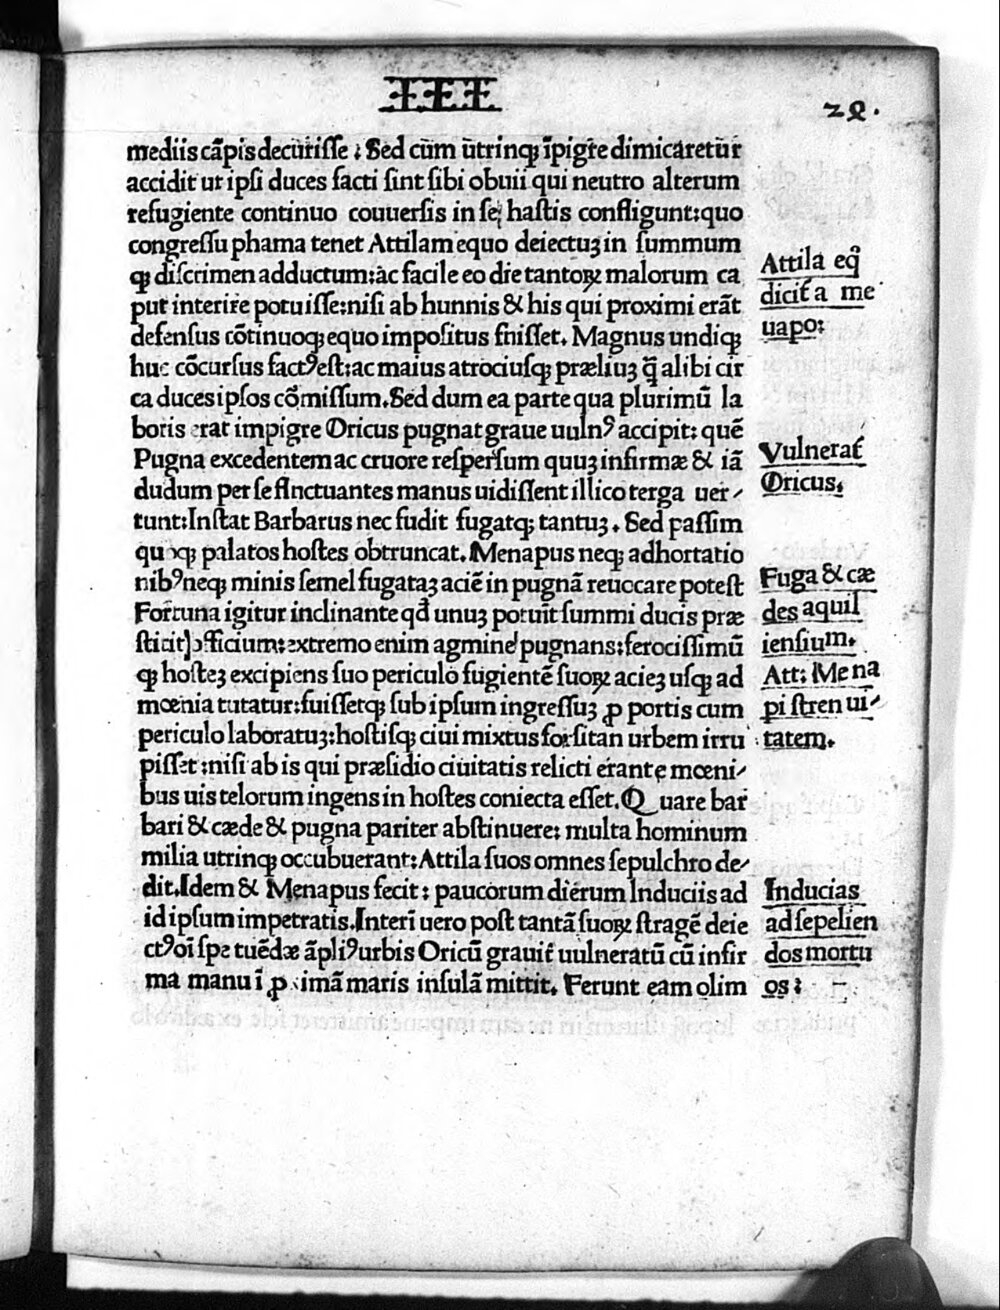 IIII
29.
mediis cãpis decurisse : Sed cum utrinqꝫ ĩpigre dimicaretur
accidit ut ipsi duces facti sint sibi obuii qui neutro alterum
refugiente continuo couuersis in se hastis confligunt:quo
congressu phama tenet Attilam equo deiectuꝫ in summum
qꝫ discrimen adductum:ac facile eo die tantoꝝ malorum ca
put interire potuisse:nisi ab hunnis & his qui proximi erãt
defensus cõtinuoqꝫ equo impositus fnisset. Magnus undiqꝫ
huc cõcursus factꝰest:ac maius atrociusqꝫ præliuꝫ q̃ alibi cir
ca duces ipsos cõmissum.Sed dum ea parte qua plurimũ la
boris erat impigre Oricus pugnat graue uulnꝰ accipit: quẽ
Pugna excedentem ac cruore respersum quuꝫ infirmæ & iã
dudum per se flnctuantes manus uidissent illico terga uer⸗
tunt:Instat Barbarus nec fudit fugatqꝫ tantuꝫ. Sed passim
quoqꝫ palatos hostes obtruncat. Menapus neqꝫ adhortatio
nibꝰneqꝫ minis semel fugataꝫ aciẽ in pugnã reuocare potest
Fortuna igitur inclinante qd̃ unuꝫ potuit summi ducis præ
stitit officium:extremo enim agmine pugnans:ferocissimũ
qꝫ hosteꝫ excipiens suo periculo fugientẽ suoꝝ acieꝫ usqꝫ ad
mœnia tutatur:fuissetqꝫ sub ipsum ingressuꝫ ꝓ portis cum
periculo laboratuꝫ:hostisqꝫ ciui mixtus forsitan urbem irru
pisset :nisi ab is qui præsidio ciuitatis relicti erant e mœni⸗
bus uis telorum ingens in hostes coniecta esset.Quare bar
bari & cæde & pugna pariter abstinuere: multa hominum
milia utrinqꝫ occubuerant:Attila suos omnes sepulchro de⸗
dit.Idem & Menapus fecit : paucorum dierum Induciis ad
id ipsum impetratis.Interĩ uero post tantã suoꝝ stragẽ deie
ctꝰoĩ spe tuẽdæ ãpliꝰurbis Oricũ grauit̃ uulneratũ cũ infir
ma manu ĩ ꝓximã maris insulã mittit. Ferunt eam olim
Attila eq̊
dicit̃ a me
uapo:
Vulnerat̃
Oricus.
Fuga & cæ
des aquil
iensium.
Att: Mena
pi stren ui⸗
tatem.
Inducias
ad sepelien
dos mortu
os :